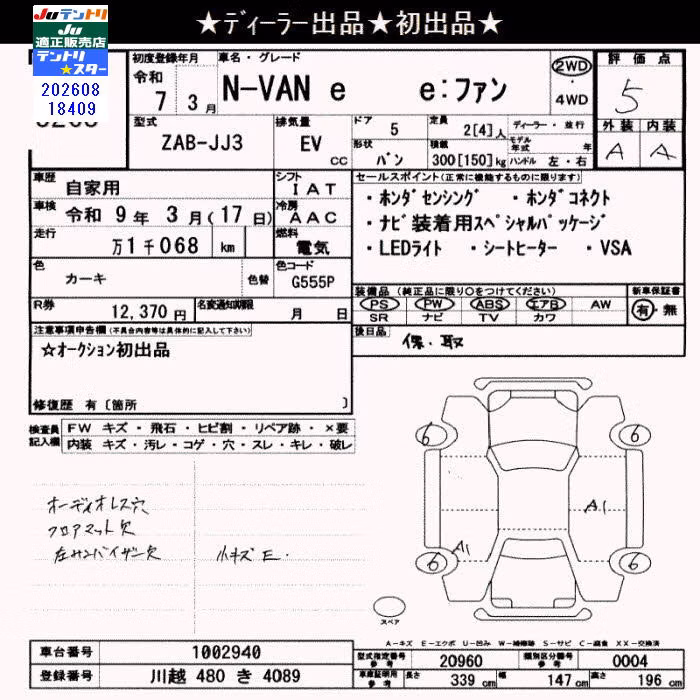 ★ディーラー出品★初出品★
Juテントリ
Ju
適正販売店
テントリ
★スター
202608
18409
初度登録年月
令和
7 3月
車名・グレード
N-VAN e e:ファン
2WD
4WD
評価点
5
外装 内装
A A
型式
ZAB-JJ3
排気量
EV
CC
ドア
5
定員
2[4]人
ディーラー・並行
モデル年式 年
形状
バン
積載
300[150]kg
ハンドル 左・右
車歴
自家用
シフト
IAT
セールスポイント(正常に機能するものに限ります)
・ホンダセンシング ・ホンダコネクト
・ナビ装着用スペシャルパッケージ
・LEDライト ・シートヒーター ・VSA
車検
令和 9年 3月(17日)
冷房
AAC
走行
万1千068 km
燃料
電気
色
カーキ
色替
色コード
G555P
装備品(純正品に限り○をつけてください)
PS PW ABS エアB AW
SR ナビ TV カワ
新車保証書
有・無
R券
12,370円
名変通知期限
月 日
後日品
保・取
注意事項申告欄(不具合内容等は具体的に記入して下さい)
☆オークション初出品
修復歴 有〔箇所 〕
検査員記入欄
FW キズ・飛石・ヒビ割・リペア跡・×要
内装 キズ・汚レ・コゲ・穴・スレ・キレ・破レ
オーディオレス穴
フロアマット欠
左サンバイザー欠
小キズE.
6 6
A1
A1
6 6
スペア
A-キズ E-エクボ U-凹み W-補修跡 S-サビ C-腐食 XX-交換済
車台番号
1002940
登録番号
川越 480 き 4089
型式指定番号
参考
20960
類別区分番号
参考
0004
車庫証明用
参考
長さ 339 cm 幅 147 cm 高さ 196 cm